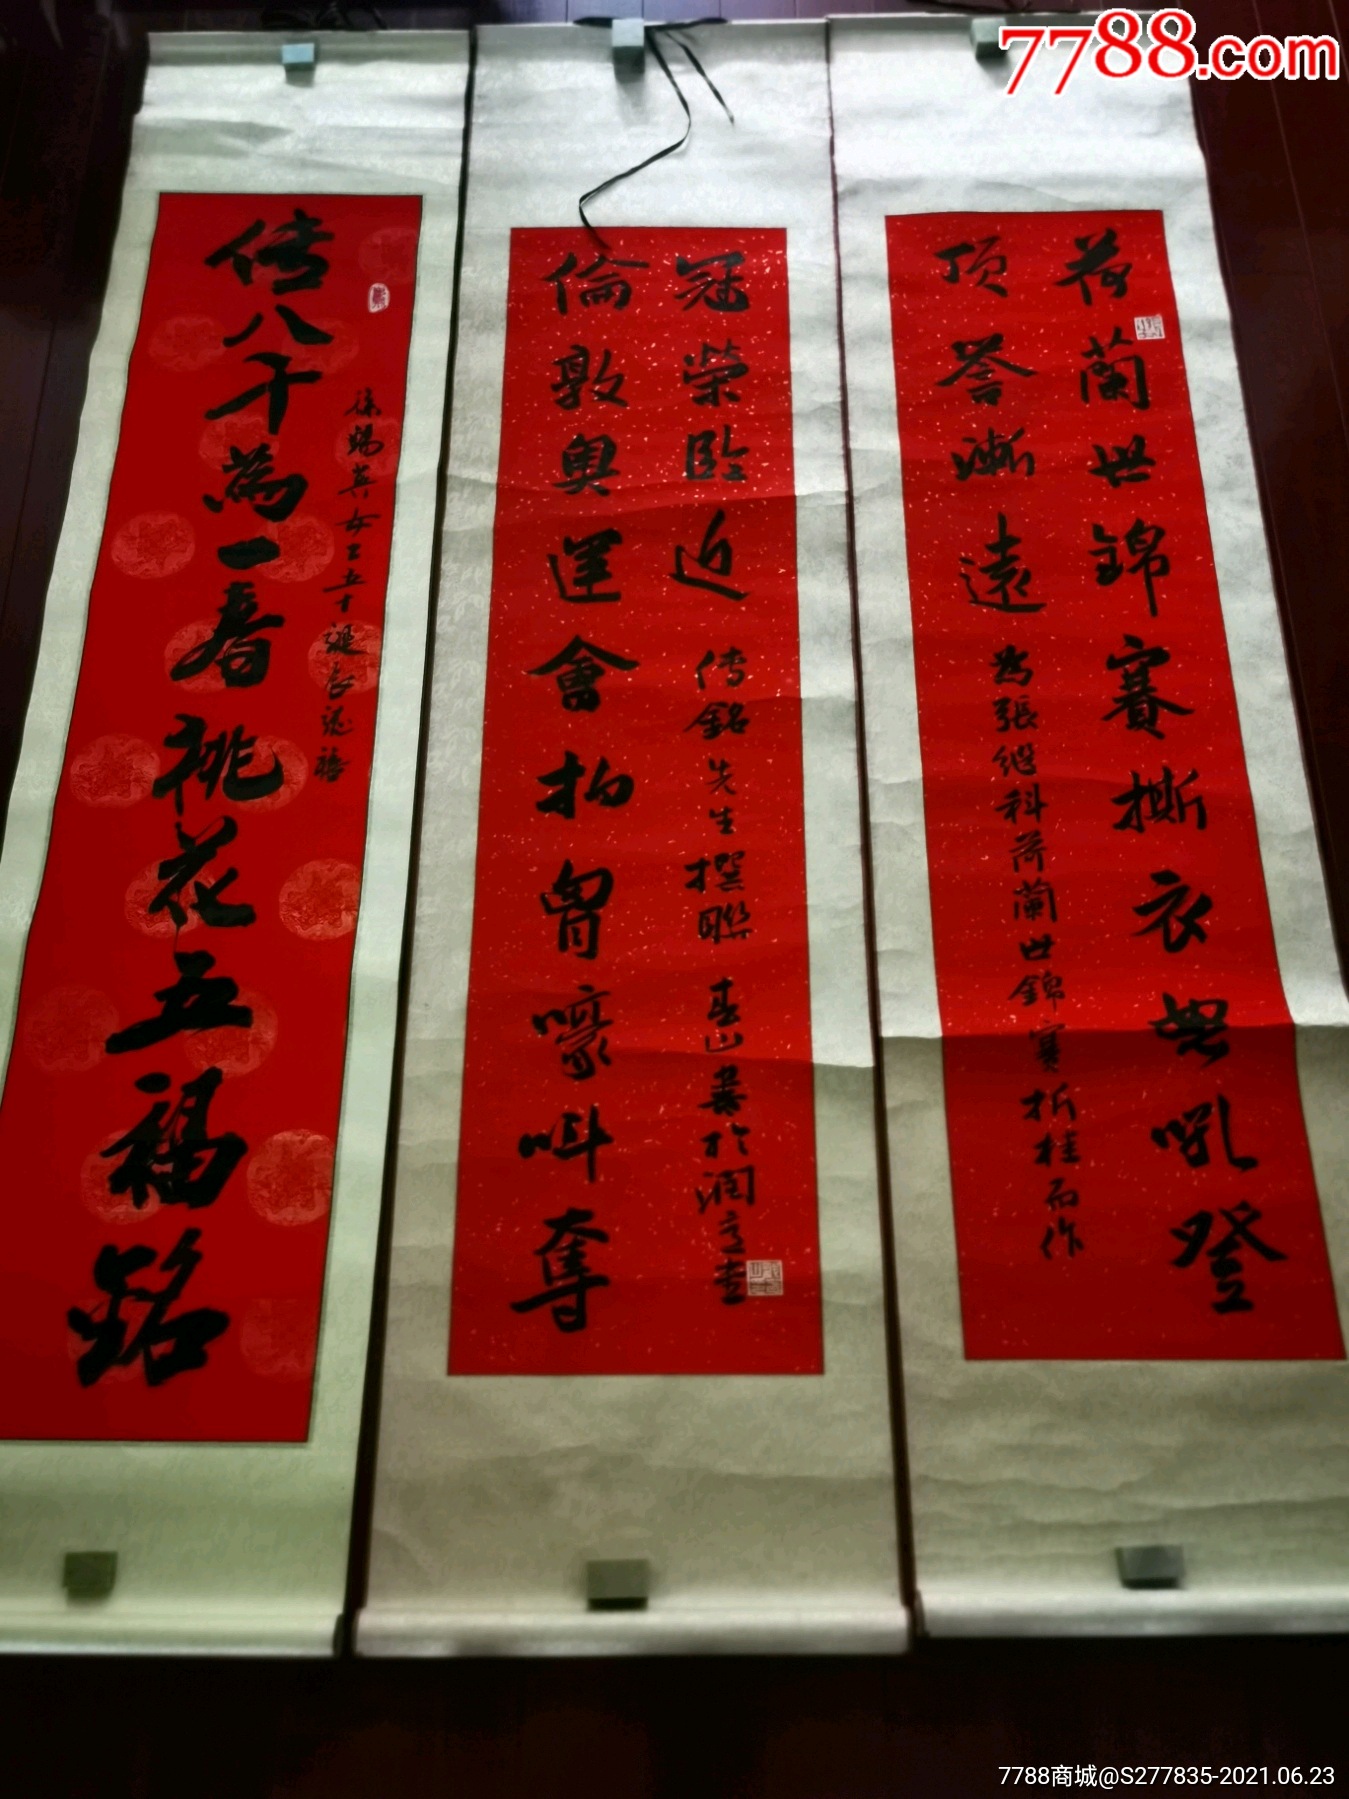 7788.com
荷蘭世錦賽撕衣無吼登
頂譽漸遠
為張继科荷蘭世錦賽折桂而作
倫敦奥運會拍胃嚎叫奪
冠榮臨近
传銘先生撰聯 春山書於潤
传八千為一春桃花五福銘
英女士五十誕辰誌禧
7788商城@S277835-2021.06.23